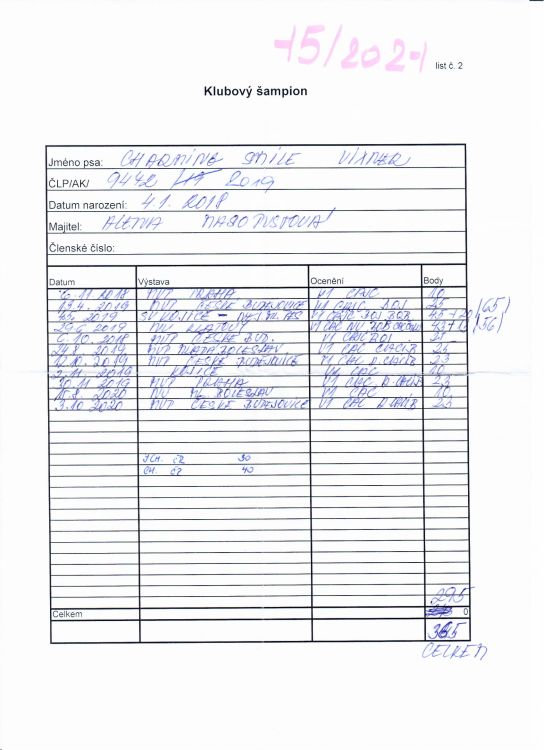 15/2021
list č. 2
Klubový šampion
Jméno psa: CHARMING SMILE VIXNER
ČLP/AK/ 9442 2019
Datum narození: 4.1. 2018
Majitel: ALENA
Členské číslo:
Datum Výstava Ocenění Body
6. 11. 2018 MVP PRAHA V1 CAJC 10
13.4. 2019 MVP ČESKÉ BUDĚJOVICE V1 CAJC BOJ 25
2019 SV KOJICE V1 CAJC BOJ BOB 45+20 (65)
29.6 2019 NV KLATOVY V1 CAC NV BOB 43+13 (56)
6. 10. 2018 MVP ČESKÉ BUD. V1 CAJC BOJ 25
24.8 2019 MVP MLADÁ BOLESLAV V1 CAC CACIB 25
12.10. 2019 MVP ČESKÉ BUDĚJOVICE V1 CAC R.CACIB 23
2.11 2019 KOJICE V1 CAC 10
30.11 2019 MVP PRAHA V1 CAC R.CACIB 23
2020 NV ML. BOLESLAV V1 CAC 10
3.10 2020 MVP ČESKÉ BUDĚJOVICE V1 CAC R.CACIB 23
JCH. ČR 30
CH. ČR 40
295
Celkem 0
365
CELKEM